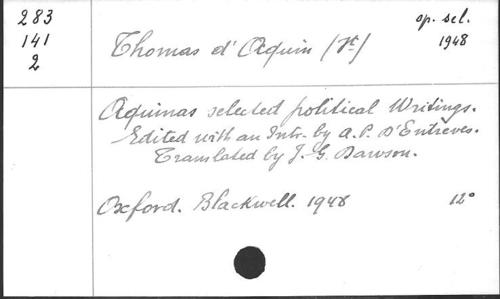 283
141
2
Thomas d'Aquin (St)
op. sel.
1948
Aquinas selected political Writings.
Edited with an Intr. by A. P. D'Entrèves.
Translated by J. G. Dawson.
Oxford. Blackwell. 1948 12°